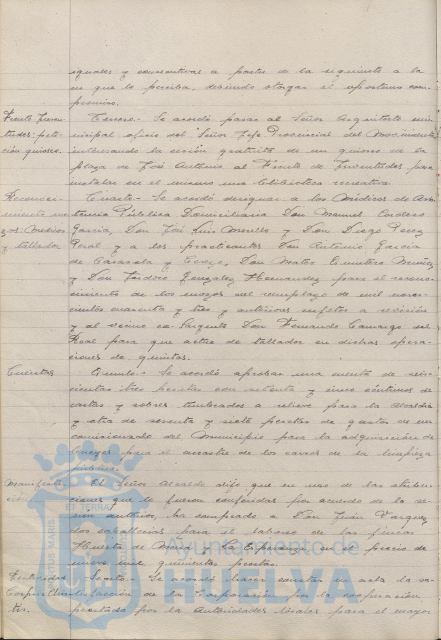 iguales y consecutivas a partir de la siguiente a la
en que lo perciba, debiendo otorgar el oportuno com-
promiso.
Frente Juven-
tudes: peti-
ción quiosco.
Tercero.- Se acordó pasar al Señor Arquitecto mu-
nicipal oficio del Señor Jefe Provincial del Movimiento
interesando la cesión gratuita de un quiosco de la
plaza de José Antonio al Frente de Juventudes para
instalar en el mismo una biblioteca recreativa.
Reconoci-
miento mo-
zos: Médicos
y tallador
Cuarto.- Se acordó designar a los Médicos de Asis-
tencia Pública Domiciliaria Don Manuel Cordero
García, Don José Luis Morillo y Don Diego Pérez
Peral y a los practicantes Don Antonio García
de Casasola y Don Mateo Muñoz
y Don Isidro González Hernández para el recono-
cimiento de los mozos del reemplazo de mil nove-
cientos cuarenta y tres y anteriores sujetos a revisión
y al vecino ex-Sargento Don Fernando Camargo del
Real para que actúe de tallador en dichas opera-
ciones de quintas.
Cuentas
Quinto.- Se acordó aprobar una cuenta de seis-
cientas tres pesetas con setenta y cinco céntimos de
cartas y sobres timbrados a relieve para la Alcaldía
y otra de sesenta y siete pesetas de gastos de un
comisionado del Municipio para la adquisición de
para el arrastre de los carros de la limpieza
pública.
El Señor Alcalde dijo que en uso de las atribu-
ciones que le fueron conferidas por acuerdo de la se-
sión anterior, ha comprado a Don Juan Vázquez
dos caballerías para el laboreo de las fincas
Huerta de y La Esperanza en el precio de
nueve mil quinientas pesetas.
Sexto.- Se acordó hacer constar en acta la sa-
tisfacción de la Corporación por la cooperación
prestada por las Autoridades locales para el mayor
Ayuntamiento de
HUELVA